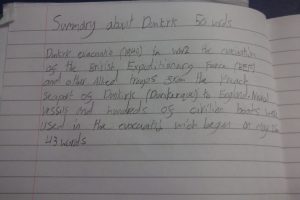 Summary about Dunkirk 50 words
Dunkirk evacuatio (1940) In WW2 the evacuation
of the British Expeditionary Force (BEF)
and other Allied troops from the French
seaport of Dunkirk (Dunkerque) to England. Naval
vessils and hundreds of civilian boats were
used in the evacuatio wich began on May 26
43 words